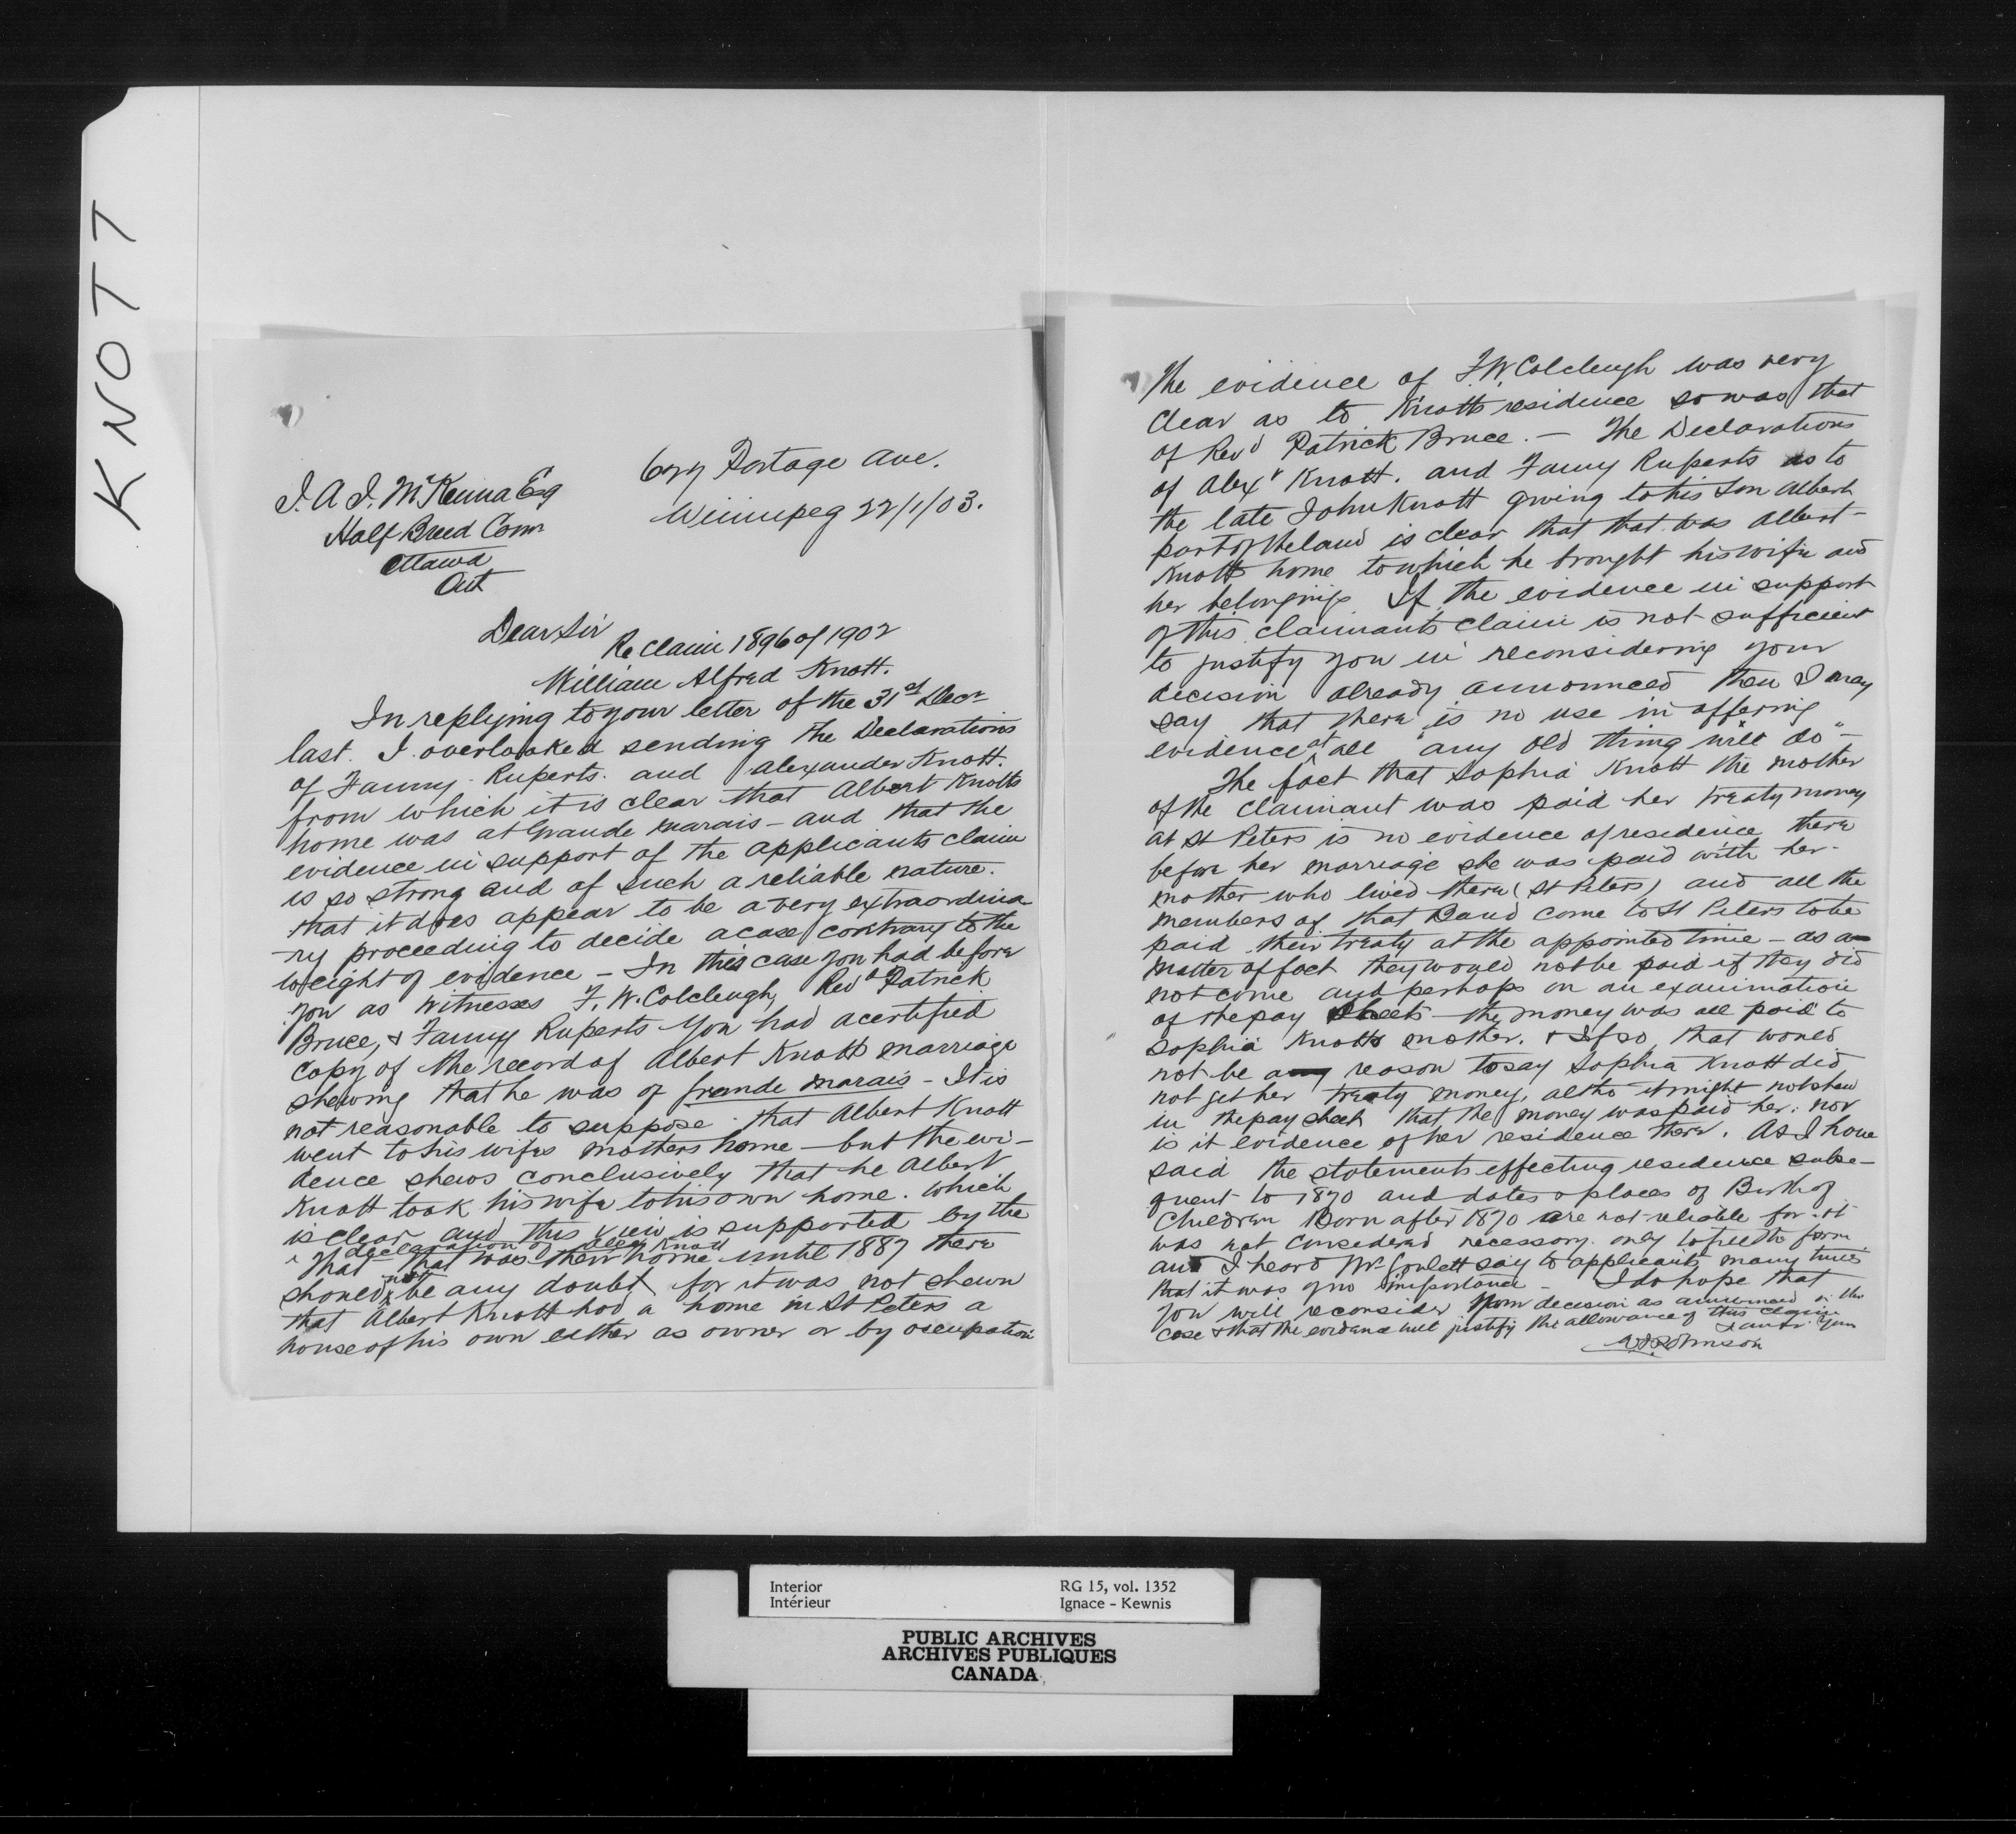 KNOTT
Portage Ave.
Winnipeg 22/1/03.
J. A. J. McKenna Esq
Half Breed Comr
Ottawa
Ont
Dear Sir
Re Claim 1896 of 1902
William Alfred Knott.
In replying to your letter of the 31st Decr
last. I overlooked sending the Declarations
of Fanny Ruperts. and Alexander Knott.
from which it is clear that Albert Knotts
home was at Grande Marais – and that the
evidence in support of the applicants claim
is so strong and of such a reliable nature.
that it does appear to be a very extraordina
-ry proceeding to decide a case contrary to the
weight of evidence – In this case you had before
you as witnesses F. W. Colcleugh, Revd Patrick
Bruce, & Fanny Ruperts You had a certified
copy of the record of Albert Knotts marriage
shewing that he was of Grande Marais – It is
not reasonable to suppose that Albert Knott
went to his wifes mothers home – but the evi-
dence shews conclusively that he Albert
Knott took his wife to his own home. which
is clear and this view is supported by the
declaration of Alex Knott
That that was their home until 1887 there
should not be any doubt for it was not shewn
that Albert Knott had a home in St Peters a
house of his own either as owner or by occupation
The evidence of F. W. Colcleugh was very
clear as to Knotts residence so was that
of Revd Patrick Bruce. – The Declarations
of Alexr Knott. and Fanny Ruperts as to
the late John Knott giving to his son Albert
part of the land is clear that that was Albert
Knotts home to which he brought his wife and
her belongings If the evidence in support
of this claimants claim is not sufficient
to justify you in reconsidering your
decision already announced then I may
say that there is no use in offering
evidence at all "any old thing will do" –
The fact that Sophia Knott the mother
of the claimant was paid her treaty money
at St Peters is no evidence of residence there
before her marriage she was paid with her
mother who lived there (St Peters) and all the
members of that Band come to St Peters to be
paid their treaty at the appointed time – as a
matter of fact they would not be paid if they did
not come and perhaps on an examination
of the pay sheets – the money was all paid to
Sophia Knotts mother. & If so that would
not be any reason to say Sophia Knott did
not get her treaty money, altho it might not shew
in the pay sheet that the money was paid her. nor
is it evidence of her residence there. As I have
said the statements effecting residence subse-
quent to 1870 and dates & places of Birth of
Children Born after 1870 are not reliable for it
was not considered necessary. only to fill the form
and I heard Mr Goulett say to applicants many times
that it was of no importance – I do hope that
you will reconsider your decision as announced in this
case & that the evidence will justify the allowance of this claim
I am Yours
Johnson
Interior
Intérieur
RG 15, vol. 1352
Ignace - Kewnis
PUBLIC ARCHIVES
ARCHIVES PUBLIQUES
CANADA